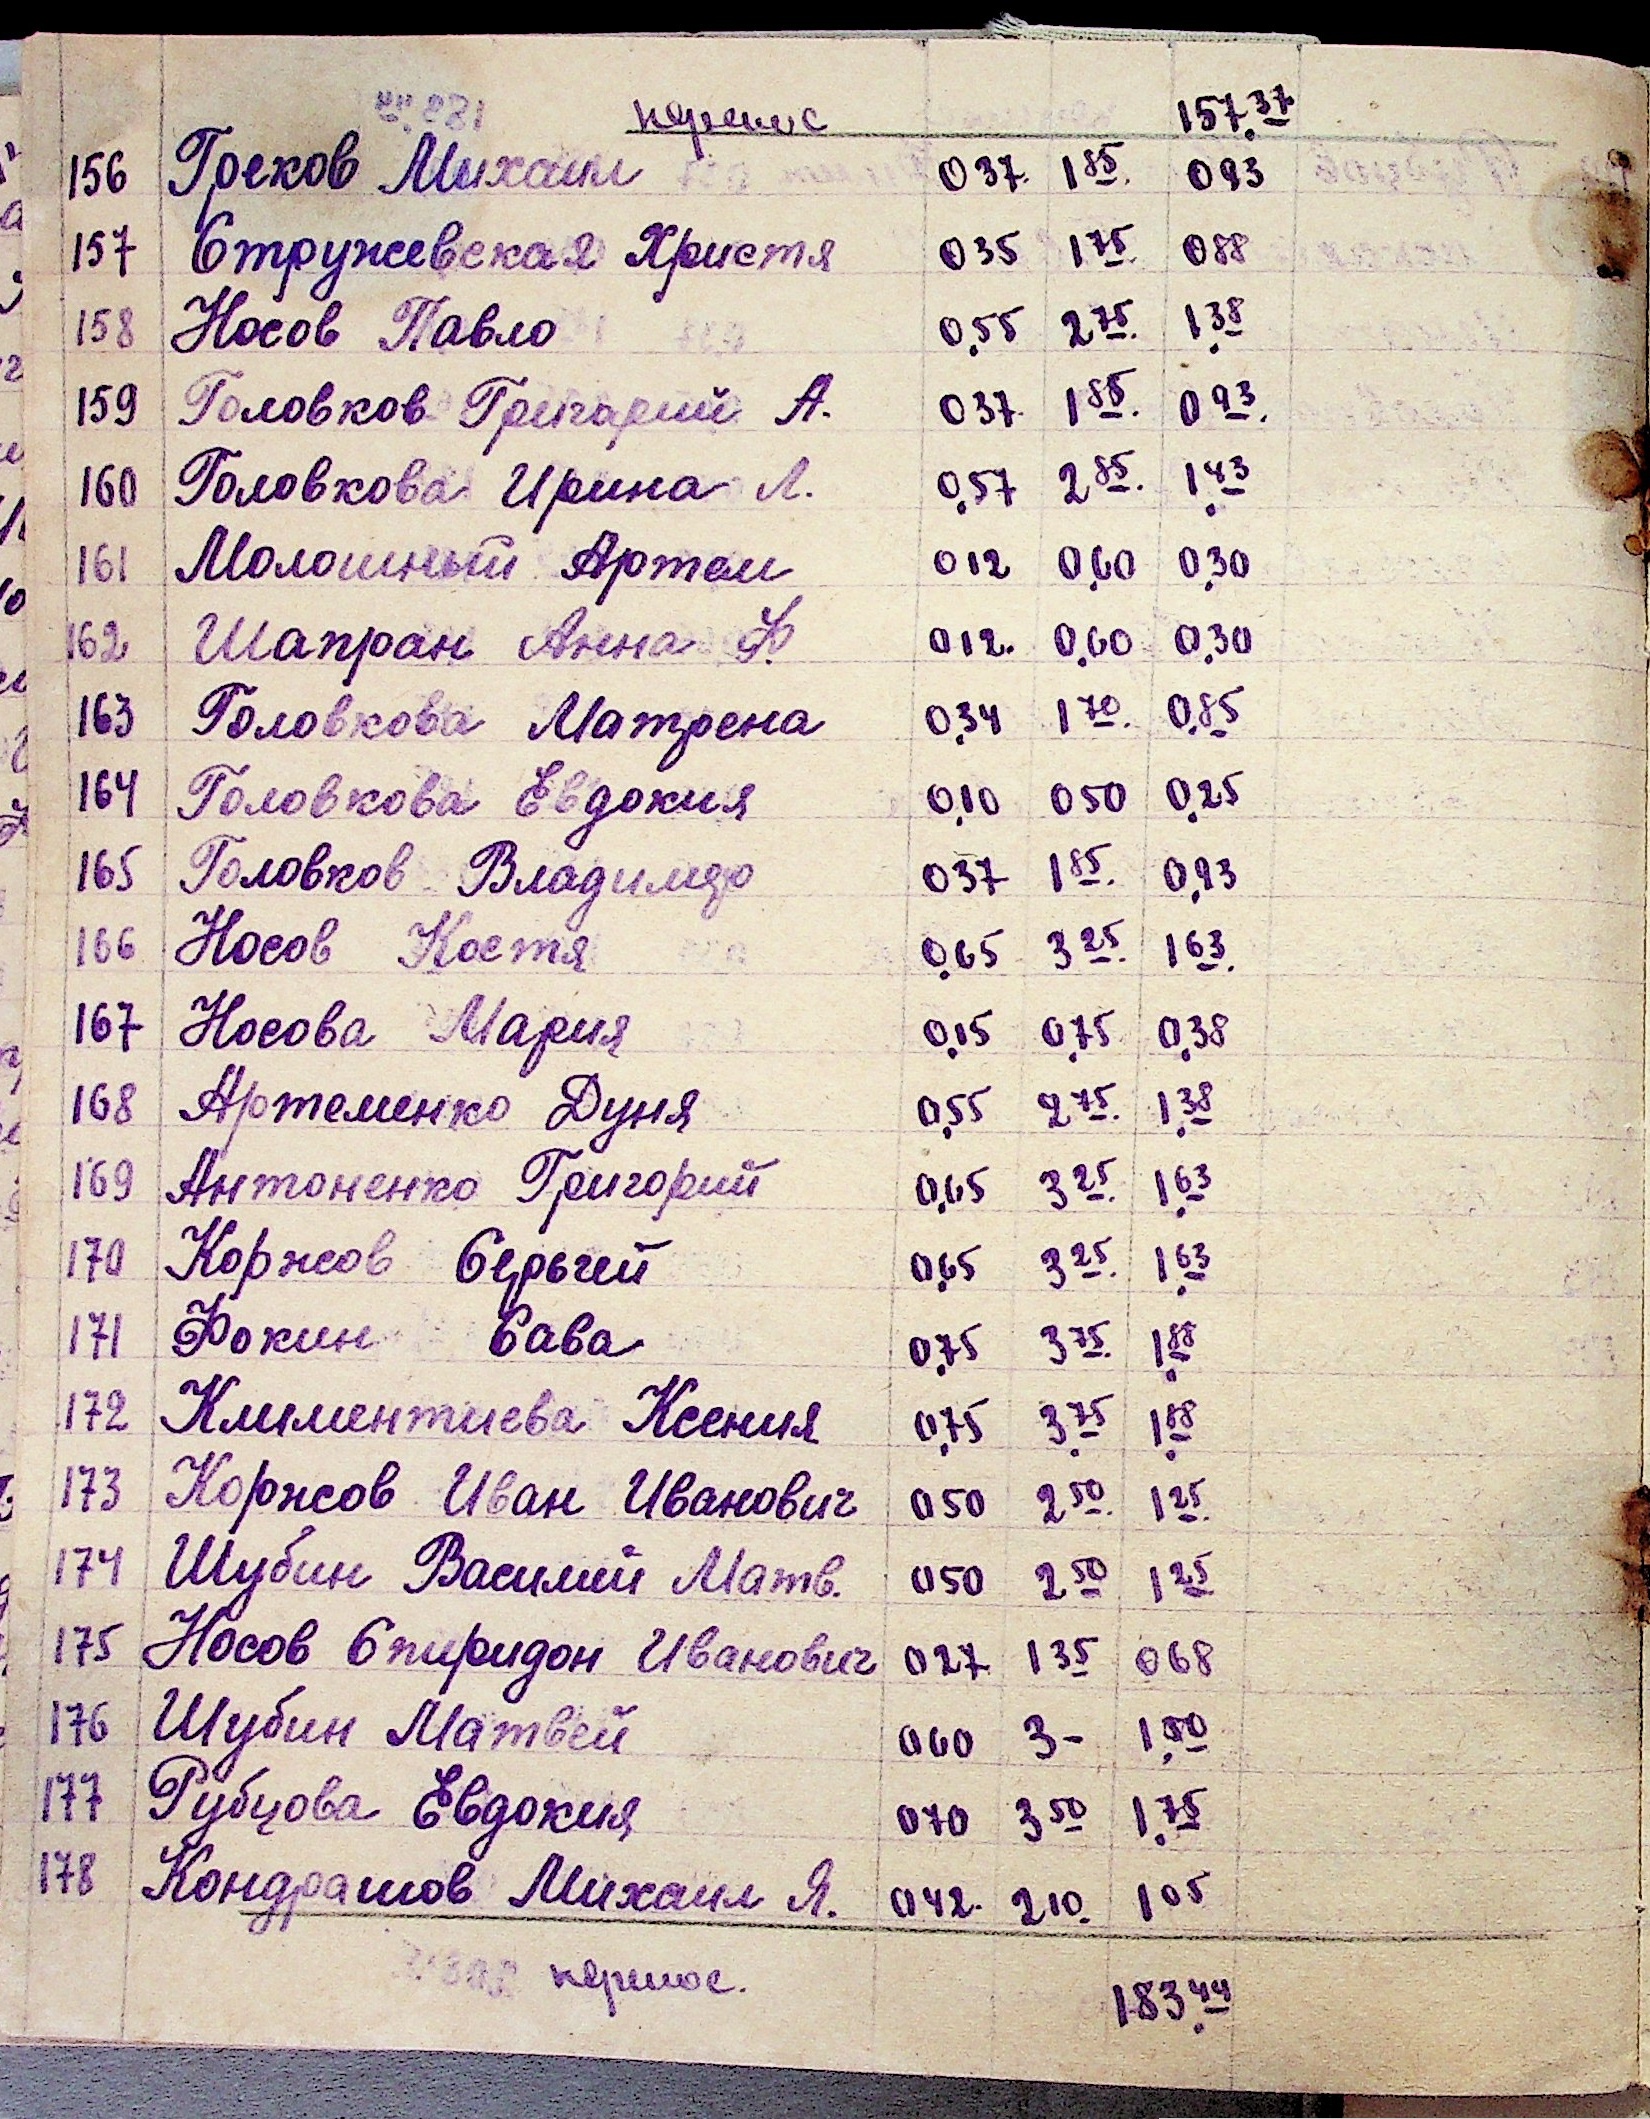 перенос 157.37
156 Греков Михаил 037. 1 85. 093
157 Стружевская Христя 035 1 75. 088
158 Носов Павло 0,55 2 75. 1.38
159 Головков Григарий А. 037. 1 85. 0 93.
160 Головкова Ирина Л. 0,57 2 85. 1.43
161 Молошный Артем 012 0,60 0,30
162 Шапран Анна Ф. 012. 0,60 0,30
163 Головкова Матрена 0,34 1 70. 0,85
164 Головкова Евдокия 0,10 050 0,25
165 Головков Владимер 037 1 85. 0,93
166 Носов Костя 0,65 3 25. 1 63.
167 Носова Мария 0,15 0,75 0,38
168 Артеменко Дуня 0,55 2 75. 1.38
169 Антоненко Григорий 0,65 3 25. 1.63
170 Коржов Серьгей 0,65 3 25. 1.63
171 Фокин Сава 0,75 3 75. 1.88
172 Климентиева Ксения 0,75 3.75 1.88
173 Коржов Иван Иванович 050 2 50. 1 25.
174 Шубин Василий Матв. 050 2 50 1 25
175 Носов Спиридон Иванович 027. 1 35 068
176 Шубин Матвей 060 3- 1.50
177 Рубцова Евдокия 070 3 50 1.75
178 Кондрашов Михаил Я. 042. 2 10. 1 05
перенос. 183.44